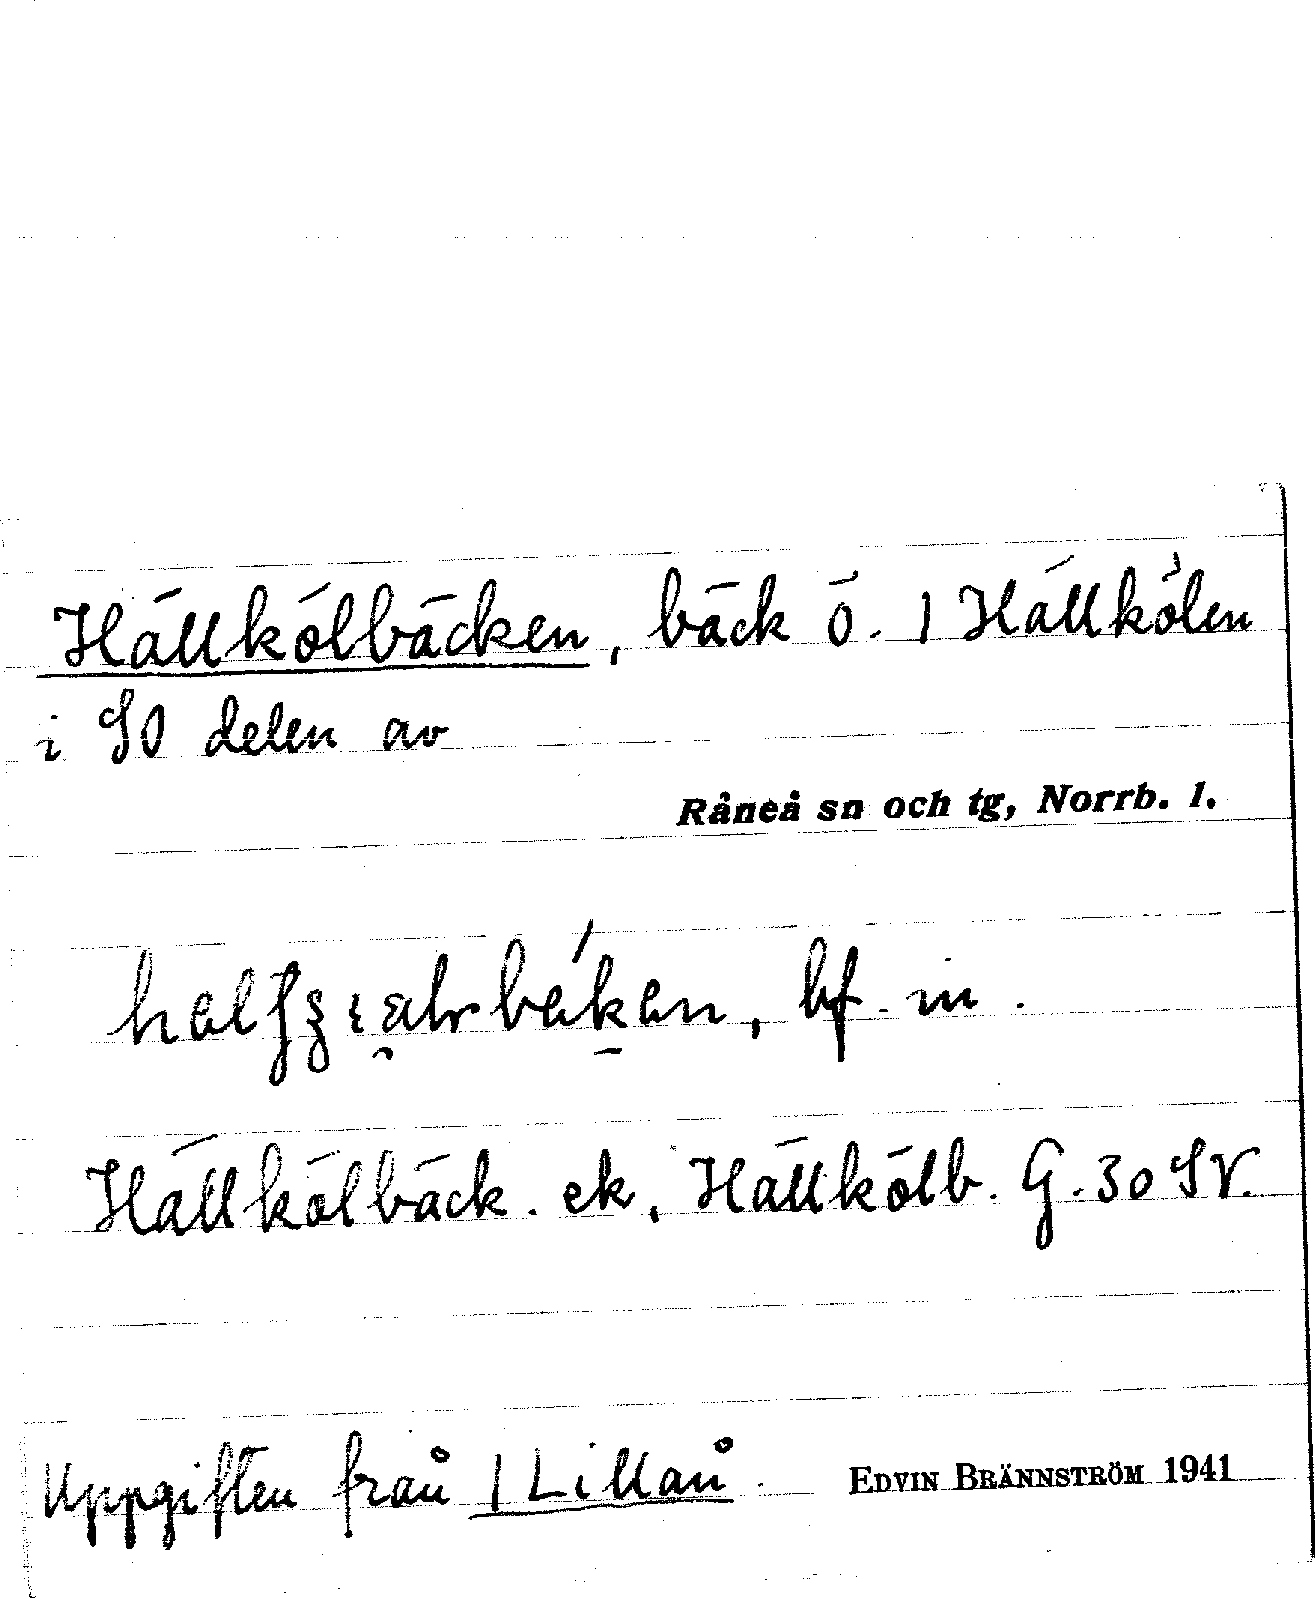 Hällkölbäcken, bäck ö. / Hällkölen
i SO delen av
Råneå sn och tg, Norrb. l.
bf. m.
Hällkölbäck. ek, Hällkölb. G. 30 SV.
Uppgiften från / Lillån.
EDVIN BRÄNNSTRÖM 1941